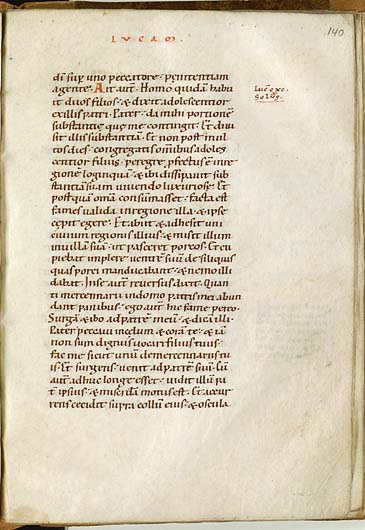 140
LVCAM
dm̄ sup uno peccatore pęnitentiam
agente. Ait aut̄. Homo quidā habu
it duos filios. & dixit adolescentior
ex illis patri. Pater. da mihi portionē
substantię quę me contingit. Et diui
sit illis substantiā. Et non post mul
tos dies. congregatis omnibus adoles
centior filius. peregre pfectus ē in re
gionē longinquā. & ibi dissipauit sub
stantiā suam uiuendo luxuriose. Et
postquā omā consumasset. facta est
fames ualida in regione illa. & ipse
cępit egere. Et abiit & adhesit uni
ciuium regionis illius. & misit illum
in uillam suā. ut pasceret porcos. Et cu
piebat implere uentrē suum de siliquis
quas porci manducabant. & nemo illi
dabat. In se aut̄ reuersus dixit. Quan
ti mercennarii in domo patris mei abun
dant panibus. ego aut̄ hic fame pereo.
Surgā & ibo ad patrē meū. & dicā illi.
Pater peccaui in cęlum & corā te. & iā
non sum dignus uocari filius tuus.
fac me sicut unum de mercennariis tu
is. Et surgens. uenit ad patrē suū. Cū
aut̄ adhuc longe esset. uidit illum pa
t ipsius. & misericdia motus est. Et accur
rens cecidit supra collum eius. & oscula